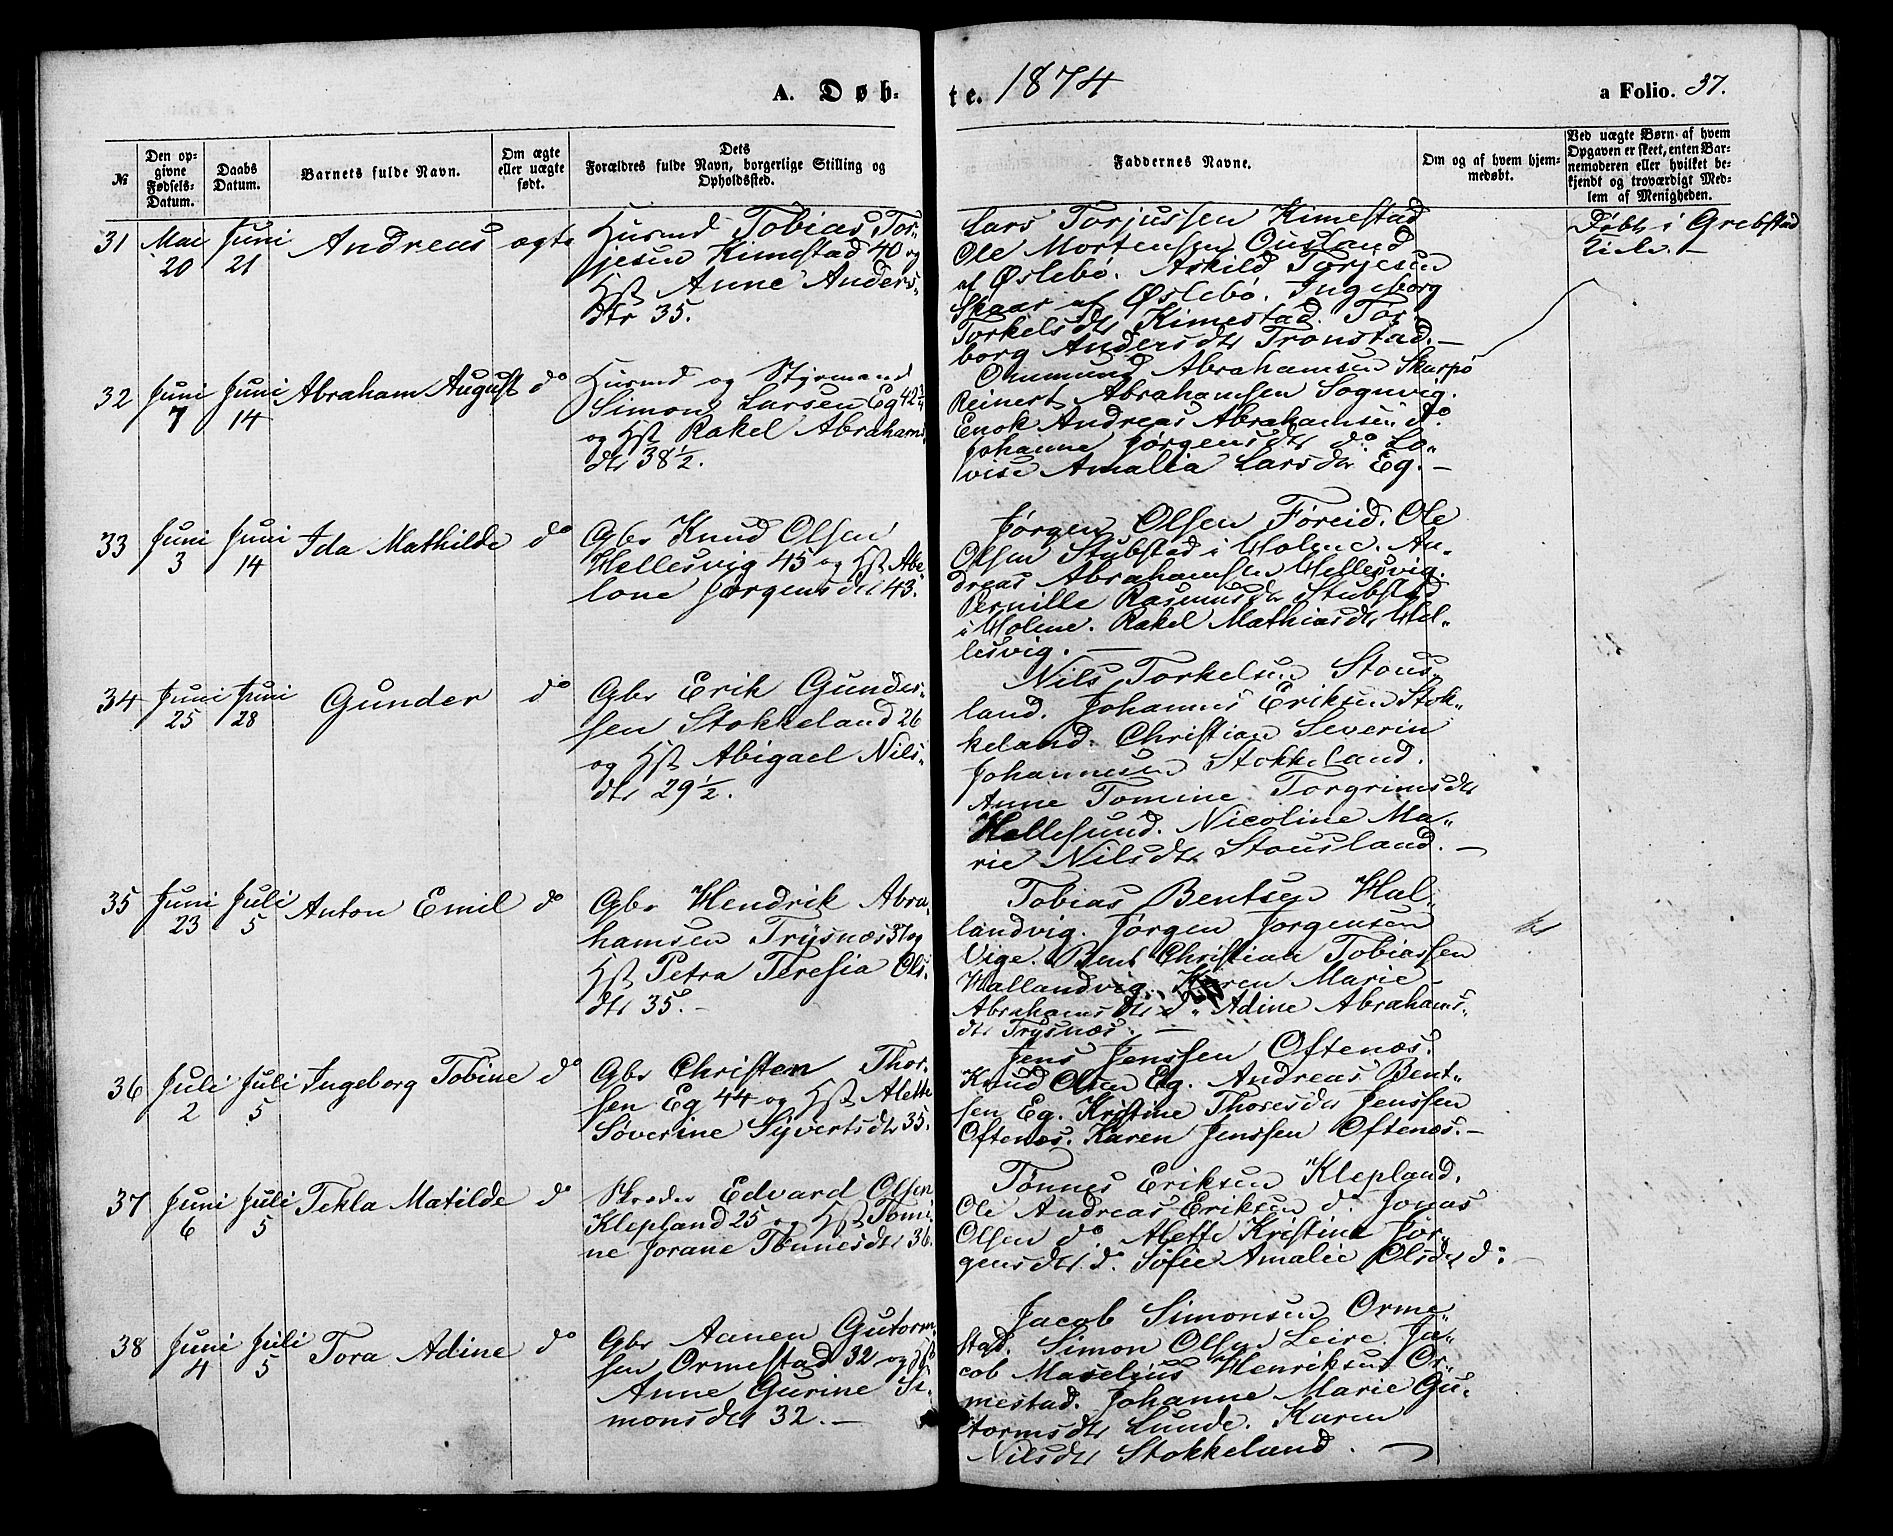 A. Døb-
te. 1874
a Folio. 37.
№
Den op-
givne
Fødsels-
Datum.
Daabs
Datum.
Barnets fulde Navn.
Om ægte
eller uægte
født.
Dets
Forældres fulde Navn, borgerlige Stilling og
Opholdssted.
Faddernes Navne.
Om og af hvem hjem-
medøbt.
Ved uægte Børn- af hvem
Opgaven er skeet, enten Bar-
nemoderen eller hvilket be-
kjendt og troværdigt Med-
lem af Menigheden.
31 Mai 20 Juni 21 Andreas ægte
Husmd Tobias Tor-
jesen Kimestad 40 og
Hst Anne Anders-
dtr 35.
Lars Torjussen Kimestad
Ole Mortensen Ousland
af Øslebø. Askild Torjesen
Skaar af Øslebø. Ingeborg
Torkelsdtr Kimestad. Tor-
borg Andersdtr Tronstad.—
Døbt i Grebstad
Kirke.—
32 Juni 7 Juni 14 Abraham August do
Husmd og Styrmand
Simon Larsen Eg 42 3/4
og Hst Rakel Abrahams-
dtr 38 1/2.
Ommund Abrahamsen Skarpø
Reinert Abrahamsen Sognvig.
Enok Andreas Abrahamsen do.
Johanne Jørgensdtr do. Lo-
vise Amalia Larsdtr Eg.—
33 Juni 3 Juni 14 Ida Mathilde do
Gbr Knud Olsen
Hellesvig 45 og Hst Abe-
lone Jørgensdtr 43.
Jørgen Olsen Føreid. Ole
Olsen Stubstad i Holme. An-
dreas Abrahamsen Hellesvig.
Pernille Rasmusdtr Stubstad
i Holme. Rakel Mathiasdtr Hel-
lesvig.—
34 Juni 25 Juni 28 Gunder do
Gbr Erik Gunder-
sen Stokkeland 26
og Hst Abigael Nils-
dtr 29 1/2.
Nils Torkelsen Stous-
land. Johannes Eriksen Stok-
keland. Christian Severin
Johannesen Stokkeland.
Anne Tomine Torgrimsdtr
Hellesund. Nicoline Ma-
rie Nilsdtr Stousland.—
35 Juni 23 Juli 5 Anton Emil do
Gbr Hendrik Abra-
hamsen Trysnæs 37 og
Hst Petra Teresia Ols-
dtr 35.—
Tobias Bentsen Hal-
landvig. Jørgen Jørgensen
Vige. Bent Christian Tobiassen
Hallandvig. Karen Marie
Abrahamsdtr do. Adine Abrahams-
dtr Trysnæs.—
36 Juli 2 Juli 5 Ingeborg Tobine do
Gbr Christen Thor-
sen Eg 44 og Hst Alette
Søverine Syvertsdtr 35.
Jens Jenssen Oftenæs.
Knud Olsen Eg. Andreas Bent-
sen Eg. Kristine Thoresdtr Jenssen
Oftenæs. Karen Jenssen Oftenæs.—
37 Juni 6 Juli 5 Tekla Matilde do
Skræder Edvard Olsen
Klepland 25 og Hst Tomi-
ne Jorane Tønnesdtr 36.
Tønnes Eriksen Klepland.
Ole Andreas Eriksen do. Jonas
Olsen do. Alette Kristine Jør-
gensdtr do. Sofie Amalie Olsdtr do.—
38 Juni 4 Juli 5 Tora Adine do
Gbr Aanen Gutorm-
sen Ormestad 32 og Hst
Anne Gurine Si-
monsdtr 32.—
Jacob Simonsen Orme-
stad. Simon Olsen Leire. Ja-
cob Maselius Henriksen Or-
mestad. Johanne Marie Gu-
tormsdtr Lunde. Karen
Nilsdtr Stokkeland.—